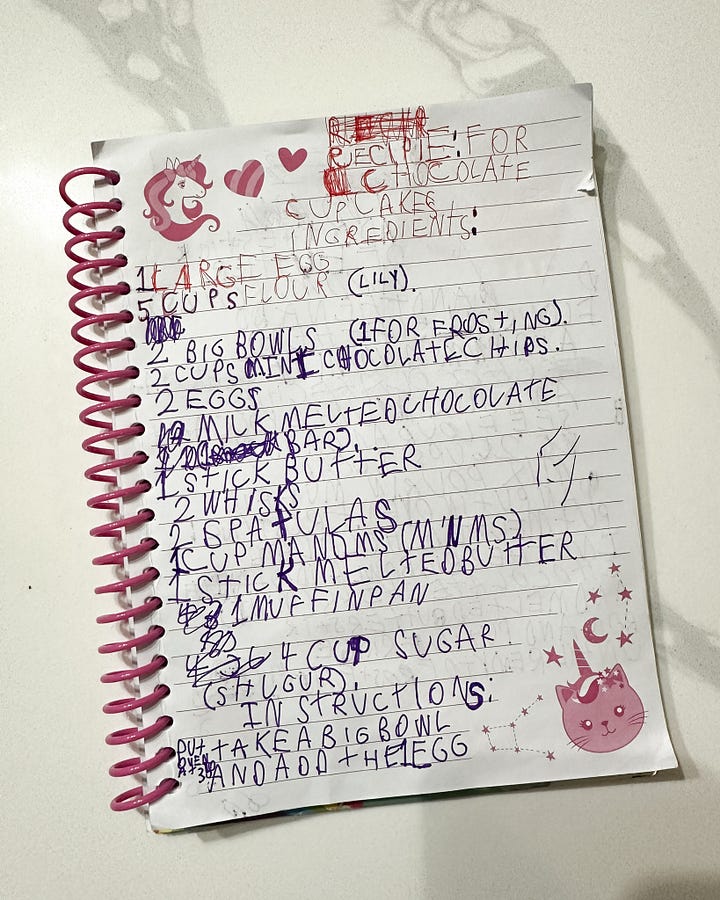 RECIPIE: FOR
CHOCOLATE
CUPCAKES
INGREDIENTS:
1 LARGE EGG
5 CUPS FLOUR (LILY).
2 BIG BOWLS (1 FOR FROSTING).
2 CUPS MINI CHOCOLATE CHIPS.
2 EGGS
MILK MELTED CHOCOLATE
BAR).
1 STICK BUTTER
2 WHISKS
2 SPATULAS
1 CUP MANDMS (M'NMS)
1 STICK MELTED BUTTER
1 MUFFIN PAN
4 CUP SUGAR
(SHUGUR).
INSTRUCTIONS:
TAKE A BIG BOWL
AND ADD THE 1 EGG